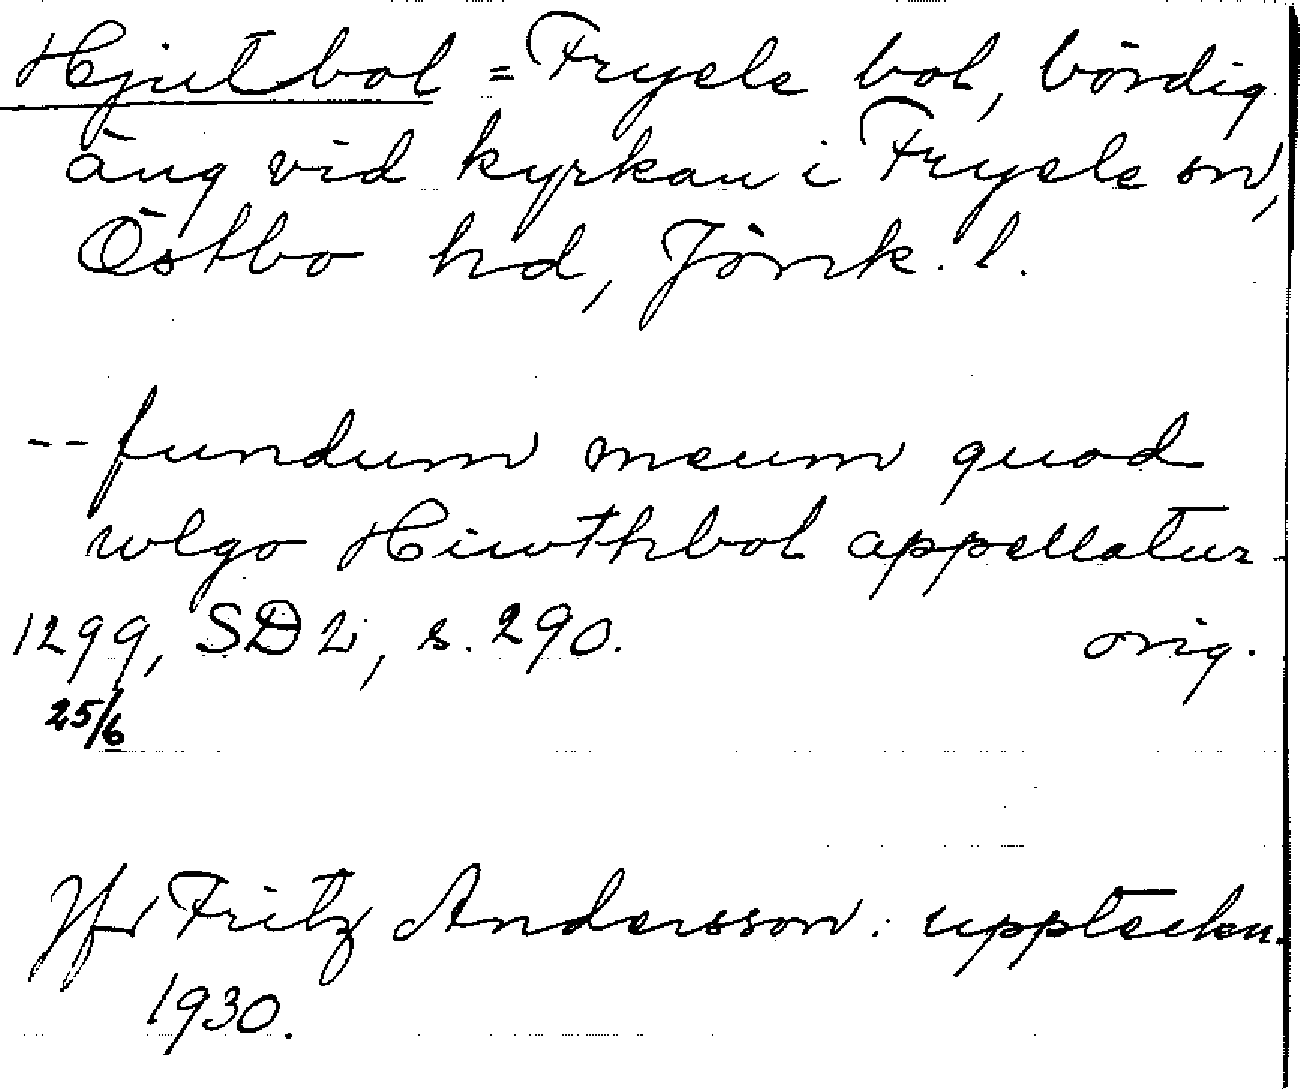 Hjutbol = Fryele bol, bördig
äng vid kyrkan i Fryele sn,
Östbo hd, Jönk. l.
-- fundum meum quod
wlgo Hiwthbol appellatur
1299, SD 2, s. 290. orig.
25/6
Jfr Fritz Andersson: uppteckn.
1930.